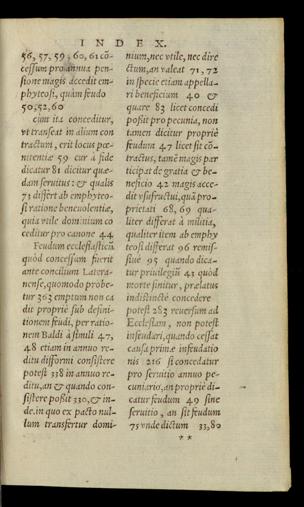 INDEX.
56, 57, 59, 60, 61 cō-
cessum pro annua pen-
sione magis accedit em-
phyteosi, quàm feudo
50, 52, 60
cùm ita conceditur,
vt transeat in alium con
tractum, erit locus pœ-
nitentiæ 59 cur à fide
dicatur 81 dicitur quæ-
dam seruitus 2 & qualis
73 differt ab emphyteo-
si ratione beneuolentiæ,
quia vtile dominium co
ceditur pro canone 44
Feudum ecclesiasticū
quòd concessum fuerit
ante concilium Latera-
nense, quomodo probe-
tur 363 emptum non ca
dit propriè sub defini-
tionem feudi, per ratio-
nem Baldi à simili 47,
48 etiam in annuo re-
ditu difformi consistere
potest 338 in annuo re-
ditu, an & quando con-
sistere possit 330, & in-
de. in quo ex pacto nul-
lum transfertur domi-
nium, nec vtile, nec dire
ctum, an valeat 71, 72
in specie etiam appella-
ri beneficium 40 &
quare 83 licet concedi
possit pro pecunia, non
tamen dicitur propriè
feudum 47 licet sit cō-
tractus, tamē magis par
ticipat de gratia & be-
neficio 42 magis acce-
dit vsufructui, quà pro-
prietati 68, 69 qua-
liter differat à militia,
qualiter item ab emphy
teosi differat 96 remis-
siuè 95 quando dica-
tur priuilegiū 43 quòd
morte finitur, prælatus
indistinctè concedere
potest 283 reuersum ad
Ecclesiam, non potest
infeudari, quando cessat
causa primæ infeudatio
nis 216 si concedatur
pro seruitio annuo pe-
cuniario, an propriè di-
catur feudum 49 sine
seruitio, an sit feudum
75 vnde dictum 33, 80
**